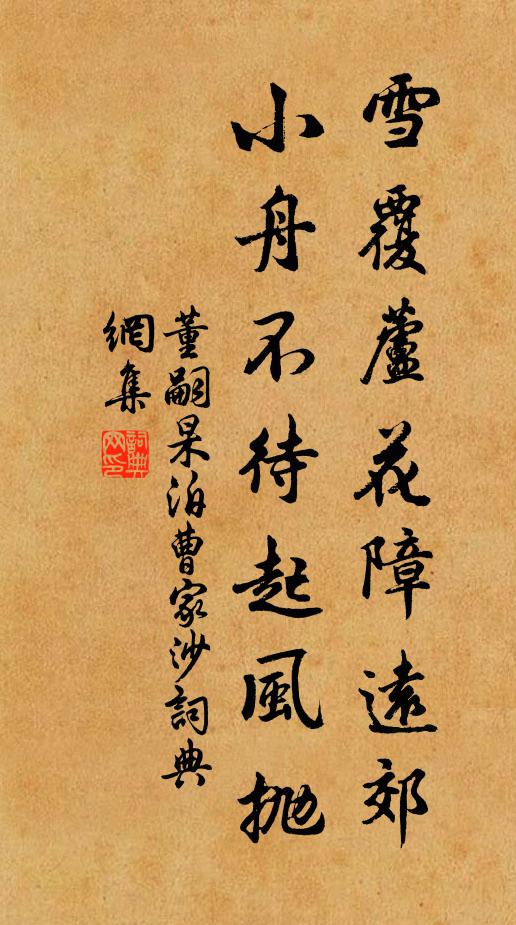 雪覆蘆花障遠郊
小舟不待起風拋
董嗣杲泊曹家沙詞典
網集
詞典
网印